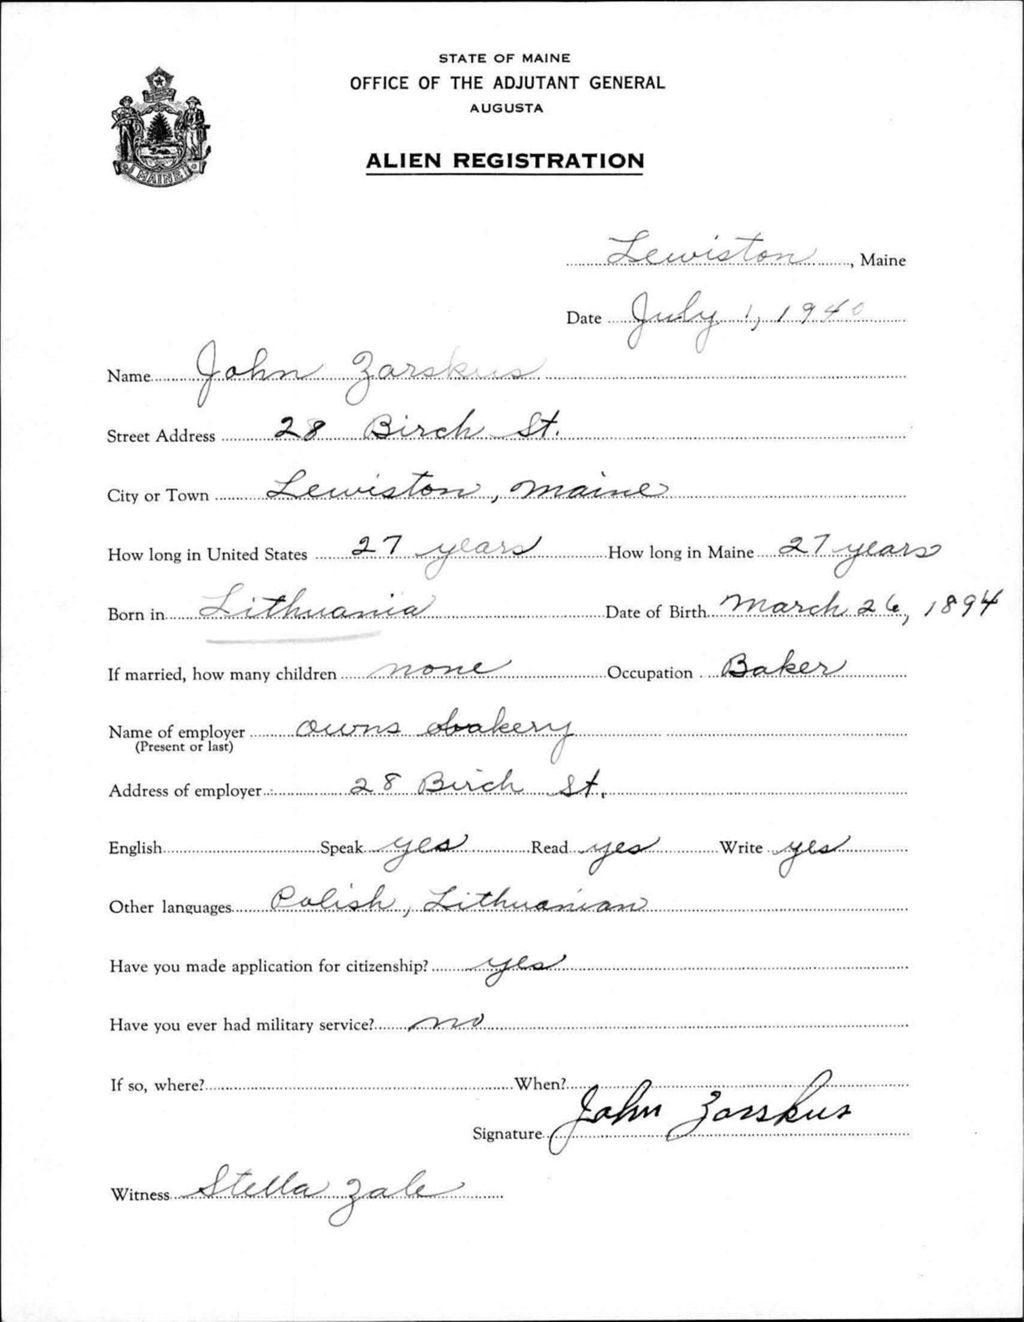 STATE OF MAINE
OFFICE OF THE ADJUTANT GENERAL
AUGUSTA
ALIEN REGISTRATION
MAINE
Lewiston, Maine
Date July 1, 1940
Name John Zarskus
Street Address 28 Birch St.
City or Town Lewiston, Maine
How long in United States 27 years How long in Maine 27 years
Born in Lithuania Date of Birth March 26, 1894
If married, how many children none Occupation Baker
Name of employer owns bakery
(Present or last)
Address of employer 28 Birch St.
English Speak yes Read yes Write yes
Other languages Polish, Lithuanian
Have you made application for citizenship? yes
Have you ever had military service? no
If so, where? When?
Signature John Zarskus
Witness Stella Zale